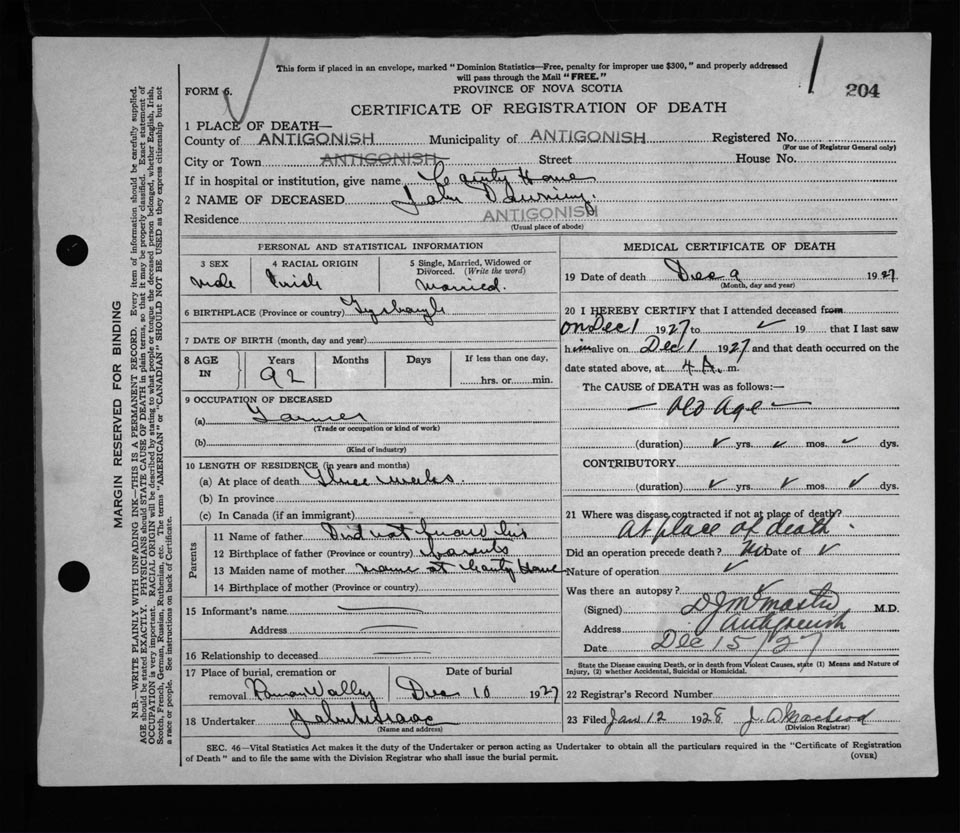 This form if placed in an envelope, marked "Dominion Statistics—Free, penalty for improper use $300," and properly addressed
will pass through the Mail "FREE."
FORM 6.
PROVINCE OF NOVA SCOTIA
204
CERTIFICATE OF REGISTRATION OF DEATH
1 PLACE OF DEATH—
County of ANTIGONISH Municipality of ANTIGONISH Registered No.
(For use of Registrar General only)
City or Town ANTIGONISH Street House No.
If in hospital or institution, give name County Home
2 NAME OF DECEASED John
Residence ANTIGONISH
(Usual place of abode)
PERSONAL AND STATISTICAL INFORMATION
3 SEX 4 RACIAL ORIGIN 5 Single, Married, Widowed or Divorced. (Write the word)
male Irish Married.
6 BIRTHPLACE (Province or country)
7 DATE OF BIRTH (month, day and year)
8 AGE IN Years Months Days If less than one day,
92 hrs. or min.
9 OCCUPATION OF DECEASED
(a) Farmer
(Trade or occupation or kind of work)
(b)
(Kind of industry)
10 LENGTH OF RESIDENCE (in years and months)
(a) At place of death Three weeks
(b) In province
(c) In Canada (if an immigrant)
Parents
11 Name of father Did not give his
12 Birthplace of father (Province or country) parents
13 Maiden name of mother name at County Home
14 Birthplace of mother (Province or country)
15 Informant's name
Address
16 Relationship to deceased
17 Place of burial, cremation or removal Date of burial
Dec 10 1927
18 Undertaker
(Name and address)
MEDICAL CERTIFICATE OF DEATH
19 Date of death Dec 9 1927
(Month, day and year)
20 I HEREBY CERTIFY that I attended deceased from
on Dec 1 1927 to ✓ 19 that I last saw
him alive on Dec 1 1927 and that death occurred on the
date stated above, at 4 A. m.
The CAUSE OF DEATH was as follows:—
— Old Age —
(duration) ✓ yrs. ✓ mos. ✓ dys.
CONTRIBUTORY
(duration) ✓ yrs. ✓ mos. ✓ dys.
21 Where was disease contracted if not at place of death?
At place of death.
Did an operation precede death? No Date of ✓
Nature of operation ✓
Was there an autopsy? ✓
(Signed) M.D.
Address Antigonish
Date Dec 15/27
State the Disease causing Death, or in death from Violent Causes, state (1) Means and Nature of
Injury, (2) whether Accidental, Suicidal or Homicidal.
22 Registrar's Record Number
23 Filed Jan 12 1928 J. A. MacLeod
(Division Registrar)
SEC. 46—Vital Statistics Act makes it the duty of the Undertaker or person acting as Undertaker to obtain all the particulars required in the "Certificate of Registration
of Death" and to file the same with the Division Registrar who shall issue the burial permit. (OVER)
MARGIN RESERVED FOR BINDING
N.B.—WRITE PLAINLY WITH UNFADING INK—THIS IS A PERMANENT RECORD. Every item of information should be carefully supplied.
AGE should be stated EXACTLY. PHYSICIANS should STATE CAUSE OF DEATH in plain terms, so that it may be properly classified. Exact statement of
OCCUPATION is very important. RACIAL ORIGIN will be described by stating to what people or tongue the deceased person belonged, whether English, Irish,
Scotch, French, German, Russian, Ruthenian, etc. The terms "AMERICAN" or "CANADIAN" SHOULD NOT BE USED as they express citizenship but not
a race or people. See instructions on back of Certificate.